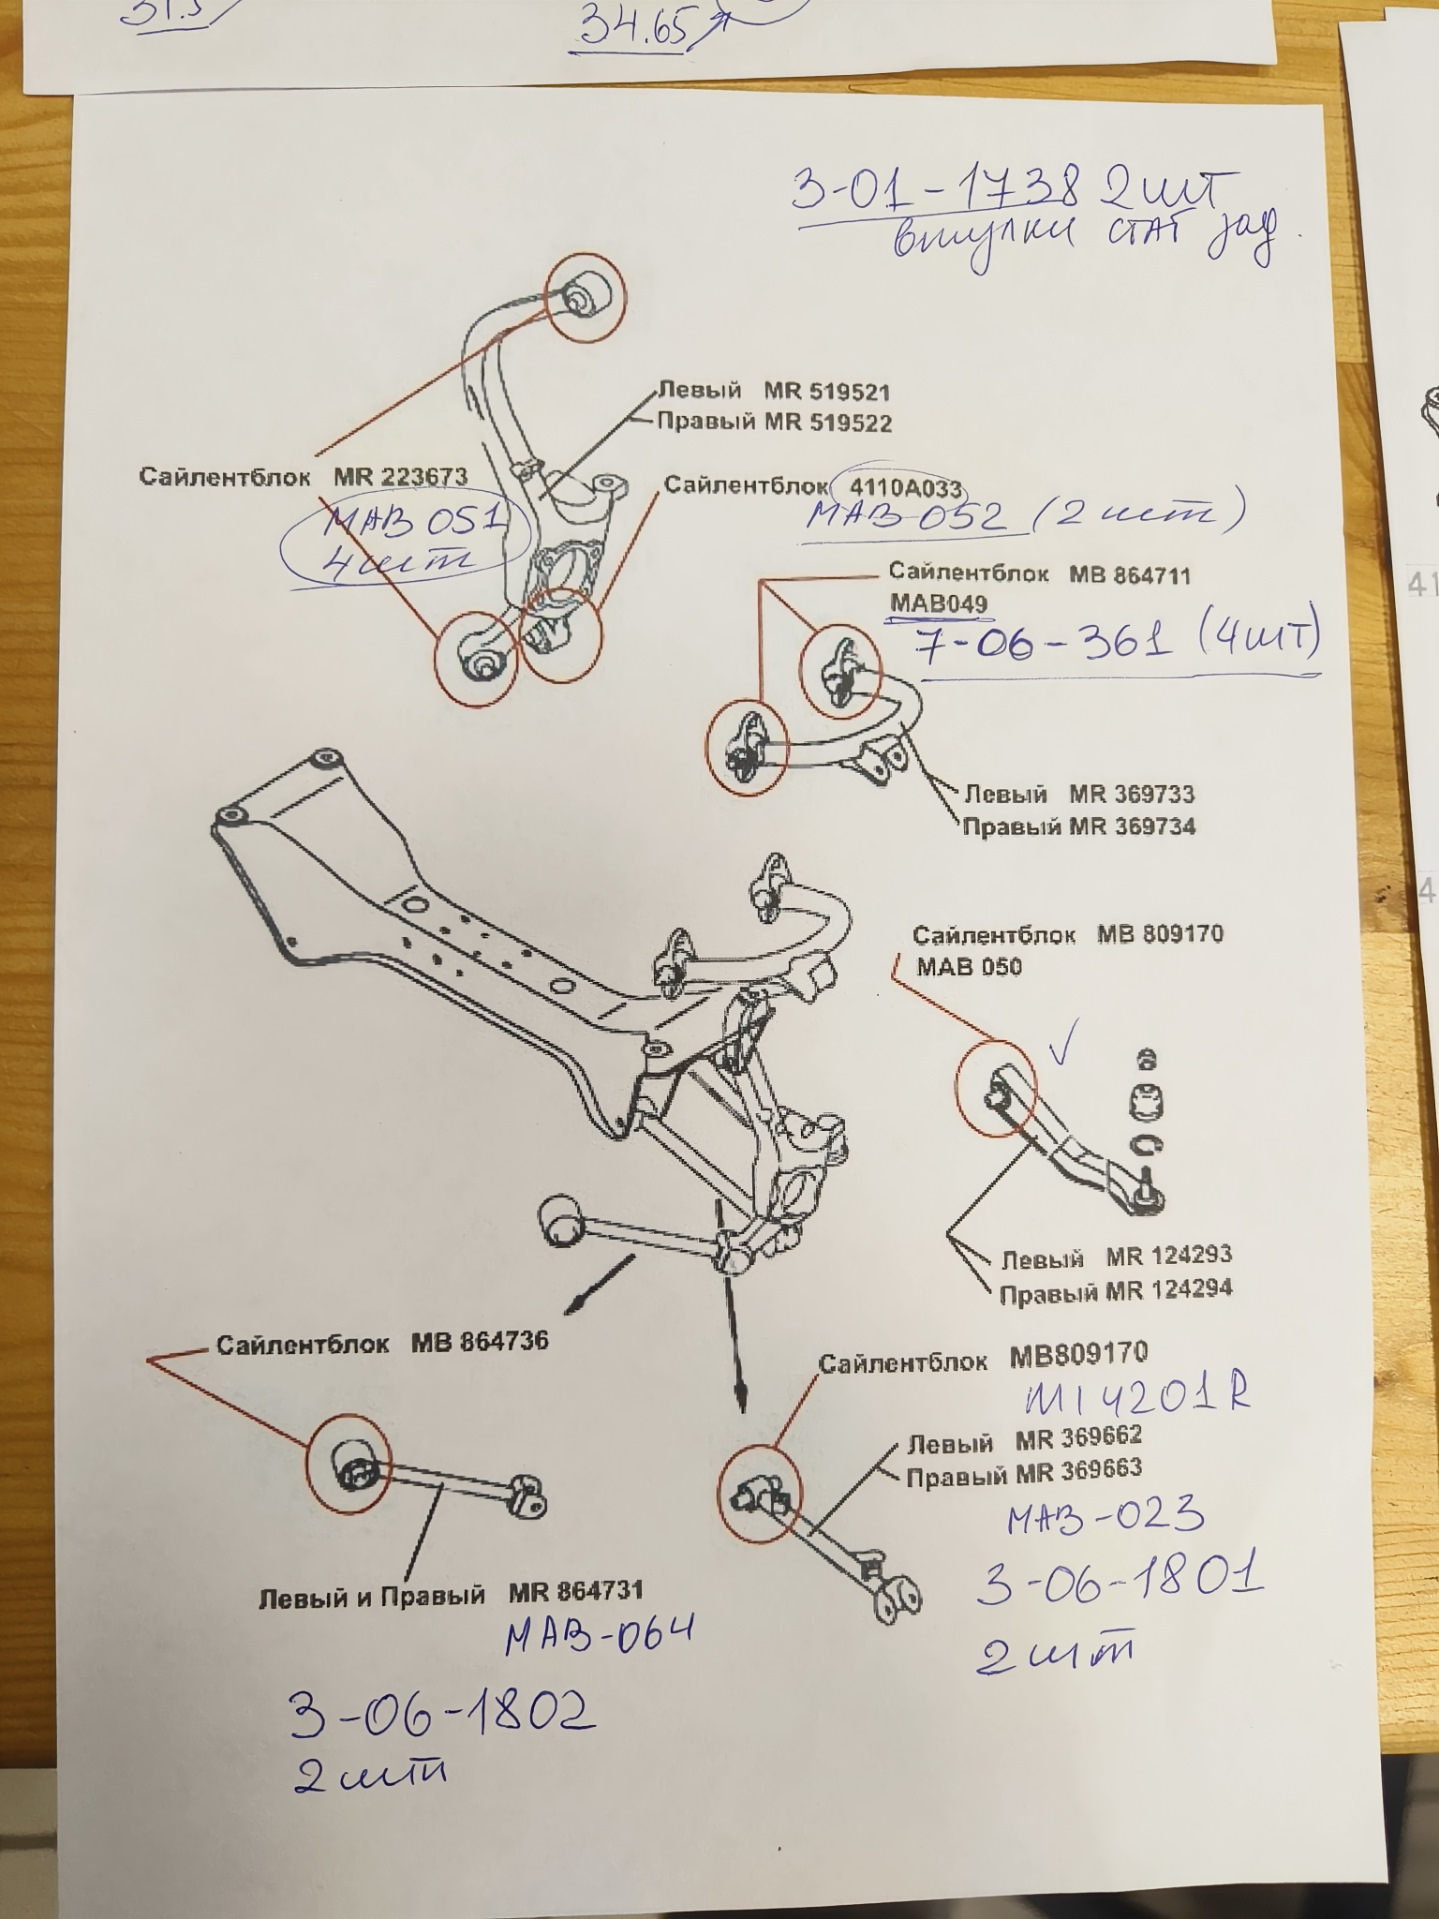 34.65
3-01-1738 2шт
втулки стат зад.
Левый MR 519521
Правый MR 519522
Сайлентблок MR 223673
MAB 051
4шт
Сайлентблок 4110A033
MAB 052 (2шт)
Сайлентблок MB 864711
MAB049
7-06-361 (4шт)
Левый MR 369733
Правый MR 369734
Сайлентблок MB 809170
MAB 050
Левый MR 124293
Правый MR 124294
Сайлентблок MB 864736
Левый и Правый MR 864731
MAB-064
3-06-1802
2шт
Сайлентблок MB809170
MI4201R
Левый MR 369662
Правый MR 369663
MAB-023
3-06-1801
2шт
41
4